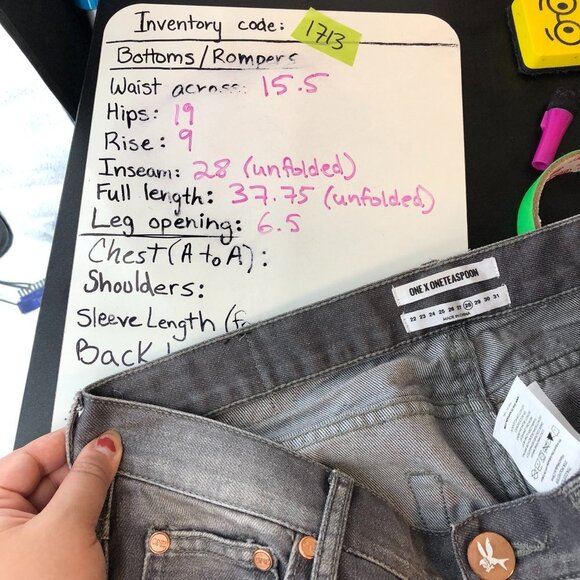 Inventory code: 1713
Bottoms/Rompers
Waist across: 15.5
Hips: 19
Rise: 9
Inseam: 28 (unfolded)
Full length: 37.75 (unfolded)
Leg opening: 6.5
Chest (A to A):
Shoulders:
Sleeve Length (f
Back
ONE X ONETEASPOON
22 23 24 25 26 27 28 29 30 31
MADE IN CHINA